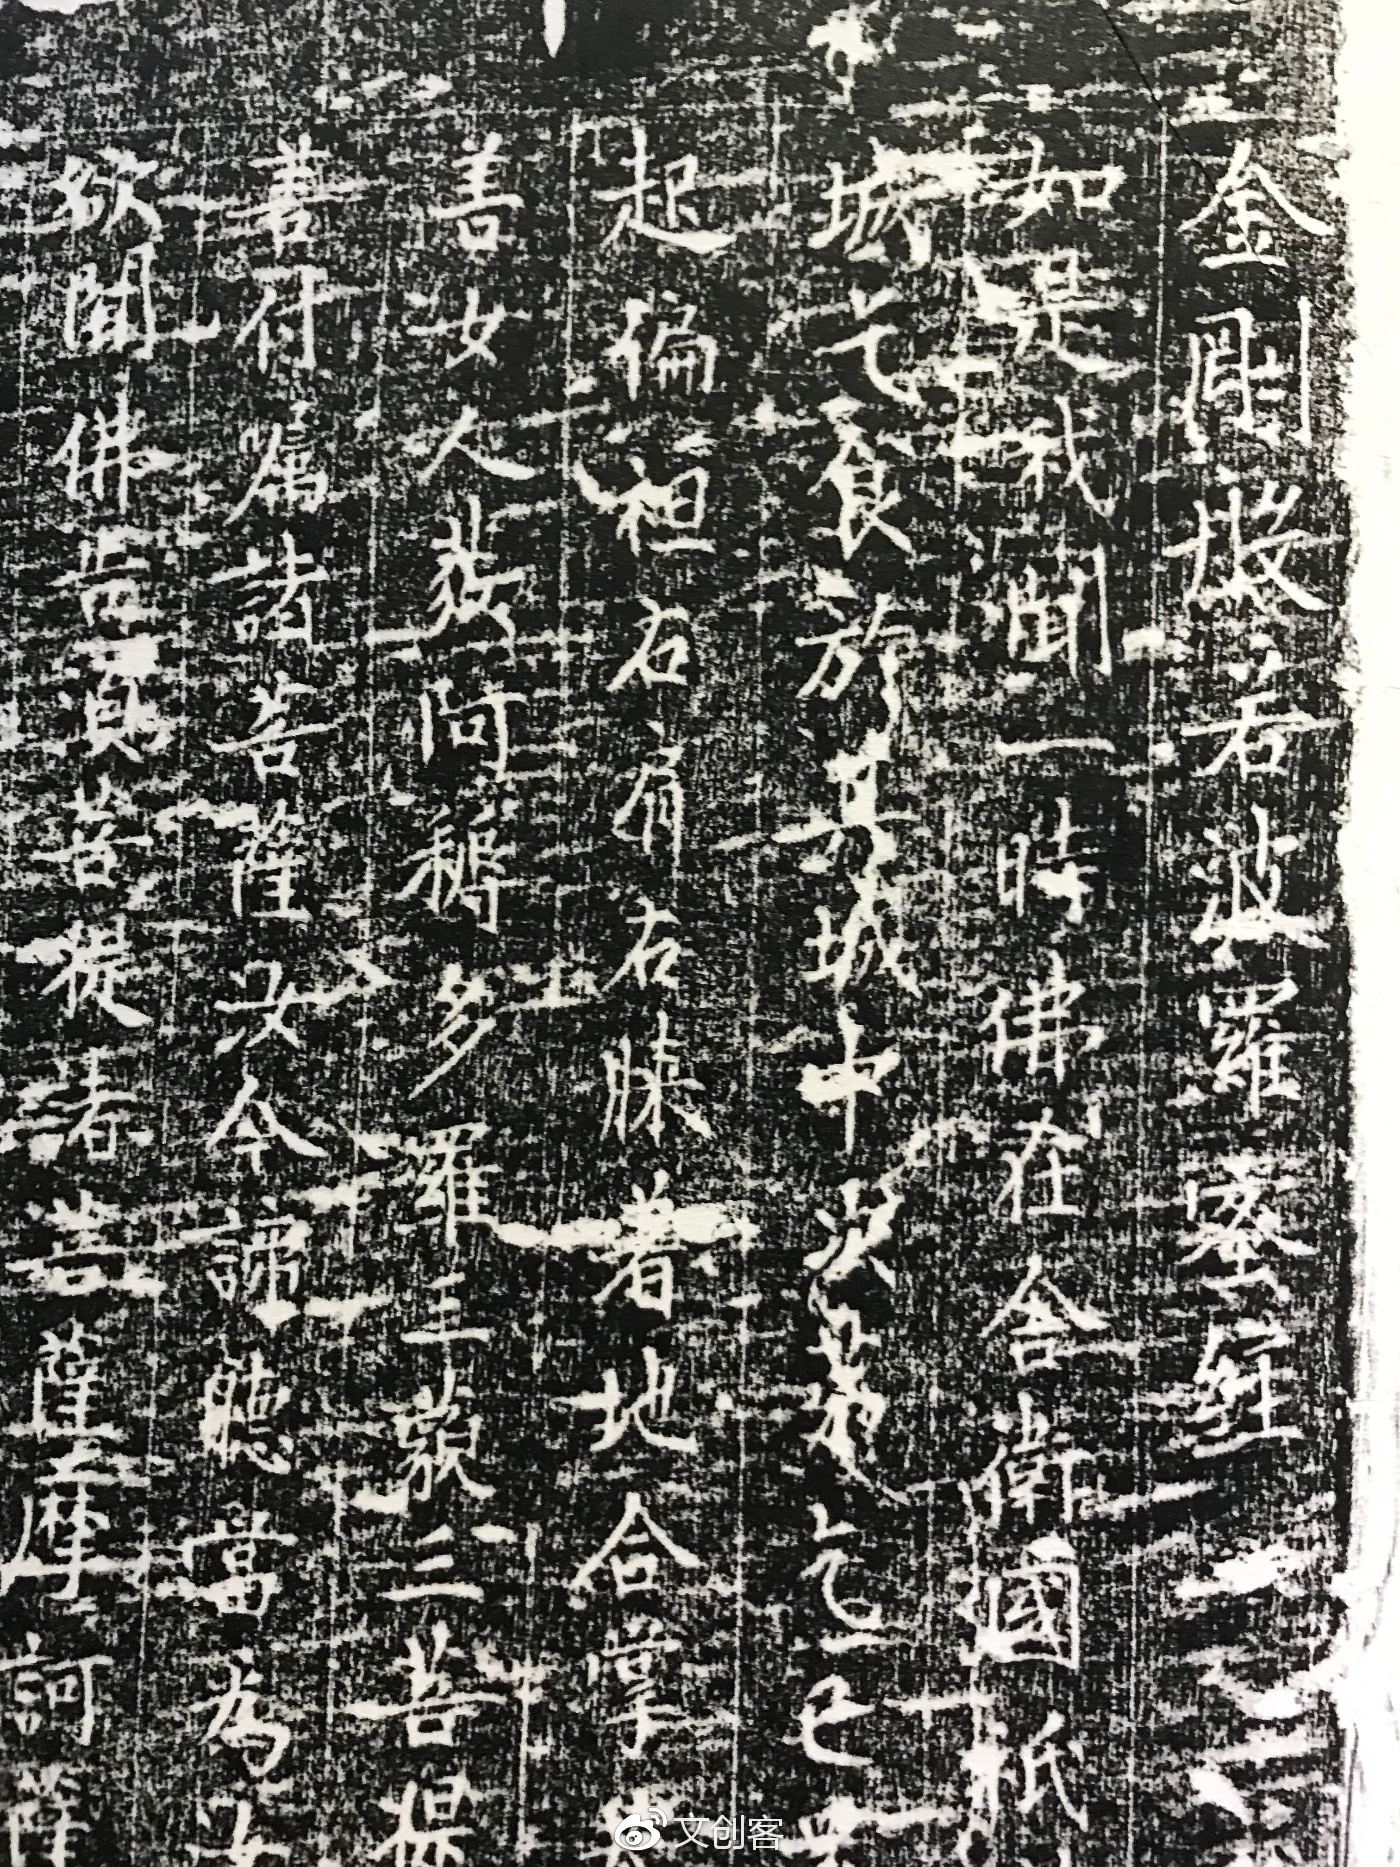 金剛般若波羅蜜經
如是我聞一時佛在舍衛國祇
城乞食於其城中次第乞已
起偏袒右肩右膝著地合掌
善女人發阿耨多羅三藐三菩提
善付囑諸菩薩汝今諦聽當為汝
欲聞佛告須菩提諸菩薩摩訶薩
文创客